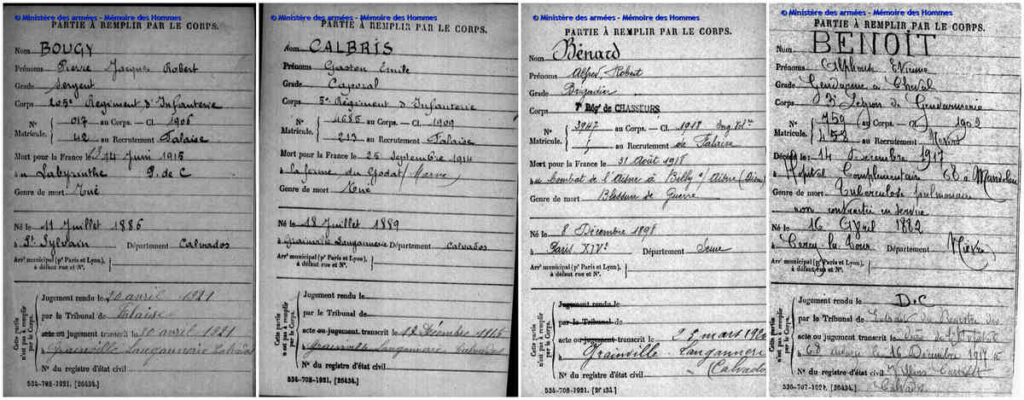 © Ministère des armées - Mémoire des Hommes
PARTIE À REMPLIR PAR LE CORPS.
Nom BOUGY
Prénoms Pierre Jacques Robert
Grade Sergent
Corps 205e Régiment d'Infanterie
N° 017 au Corps. — Cl. 1906
Matricule. 42 au Recrutement Falaise
Mort pour la France le 14 Juin 1915
au Labyrinthe P. de C
Genre de mort Tué
Né le 11 Juillet 1886
à St Sylvain Département Calvados
Arrt municipal (pr Paris et Lyon),
à défaut rue et N°.
Cette partie n'est pas à remplir par le Corps.
Jugement rendu le 20 avril 1921
par le Tribunal de Falaise
acte ou jugement transcrit le 30 avril 1921
à Grainville Langannerie Calvados
N° du registre d'état civil
534-708-1921. [26434.]
© Ministère des armées - Mémoire des Hommes
PARTIE À REMPLIR PAR LE CORPS.
Nom CALBRIS
Prénoms Gaston Emile
Grade Caporal
Corps 5e Régiment d'Infanterie
N° 4685 au Corps. — Cl. 1909
Matricule. 213 au Recrutement Falaise
Mort pour la France le 25 Septembre 1914
à la ferme du Godat (Marne)
Genre de mort Tué
Né le 18 Juillet 1889
à Grainville Langannerie Département Calvados
Arrt municipal (pr Paris et Lyon),
à défaut rue et N°.
Cette partie n'est pas à remplir par le Corps.
Jugement rendu le
par le Tribunal de
acte ou jugement transcrit le 12 Décembre
à Grainville Langannerie Calvados
N° du registre d'état civil
534-708-1921. [26434.]
© Ministère des armées - Mémoire des Hommes
PARTIE À REMPLIR PAR LE CORPS.
Nom Bénard
Prénoms Alfred, Robert
Grade Brigadier
Corps 7e Régt de CHASSEURS
N° 3947 au Corps. — Cl. 1918 Eng. Vol.re
Matricule. au Recrutement de Falaise
Mort pour la France le 31 Août 1918
au Combat de l'Aisne à Billy s/ Aisne (Aisne)
Genre de mort Blessure de Guerre
Né le 8 Décembre 1898
à Paris XIVe Département Seine
Arrt municipal (pr Paris et Lyon),
à défaut rue et N°.
Cette partie n'est pas à remplir par le Corps.
Jugement rendu le
par le Tribunal de
acte ou jugement transcrit le mars
à Grainville Langannerie
(Calvados)
N° du registre d'état civil
534-708-1921. [26434.]
© Ministère des armées - Mémoire des Hommes
PARTIE À REMPLIR PAR LE CORPS.
Nom BENOÎT
Prénoms Alphonse Etienne
Grade Gendarme à Cheval
Corps 3e Légion de Gendarmerie
N° 759 au Corps. — Cl. 1902
Matricule. 453 au Recrutement Nevers
Décédé le 14 Décembre 1917
à Hôpital Complémentaire 68 à
Genre de mort Tuberculose pulmonaire
non contractée en service
Né le 16 Avril 1882
à Cercy-la-Tour Département Nièvre
Arrt municipal (pr Paris et Lyon),
à défaut rue et N°.
Cette partie n'est pas à remplir par le Corps.
Jugement rendu le D.C
par le Tribunal de
acte ou jugement transcrit le
à 16 Décembre 1917
N° du registre d'état civil
Calvados
534-707-1921. [26434.]